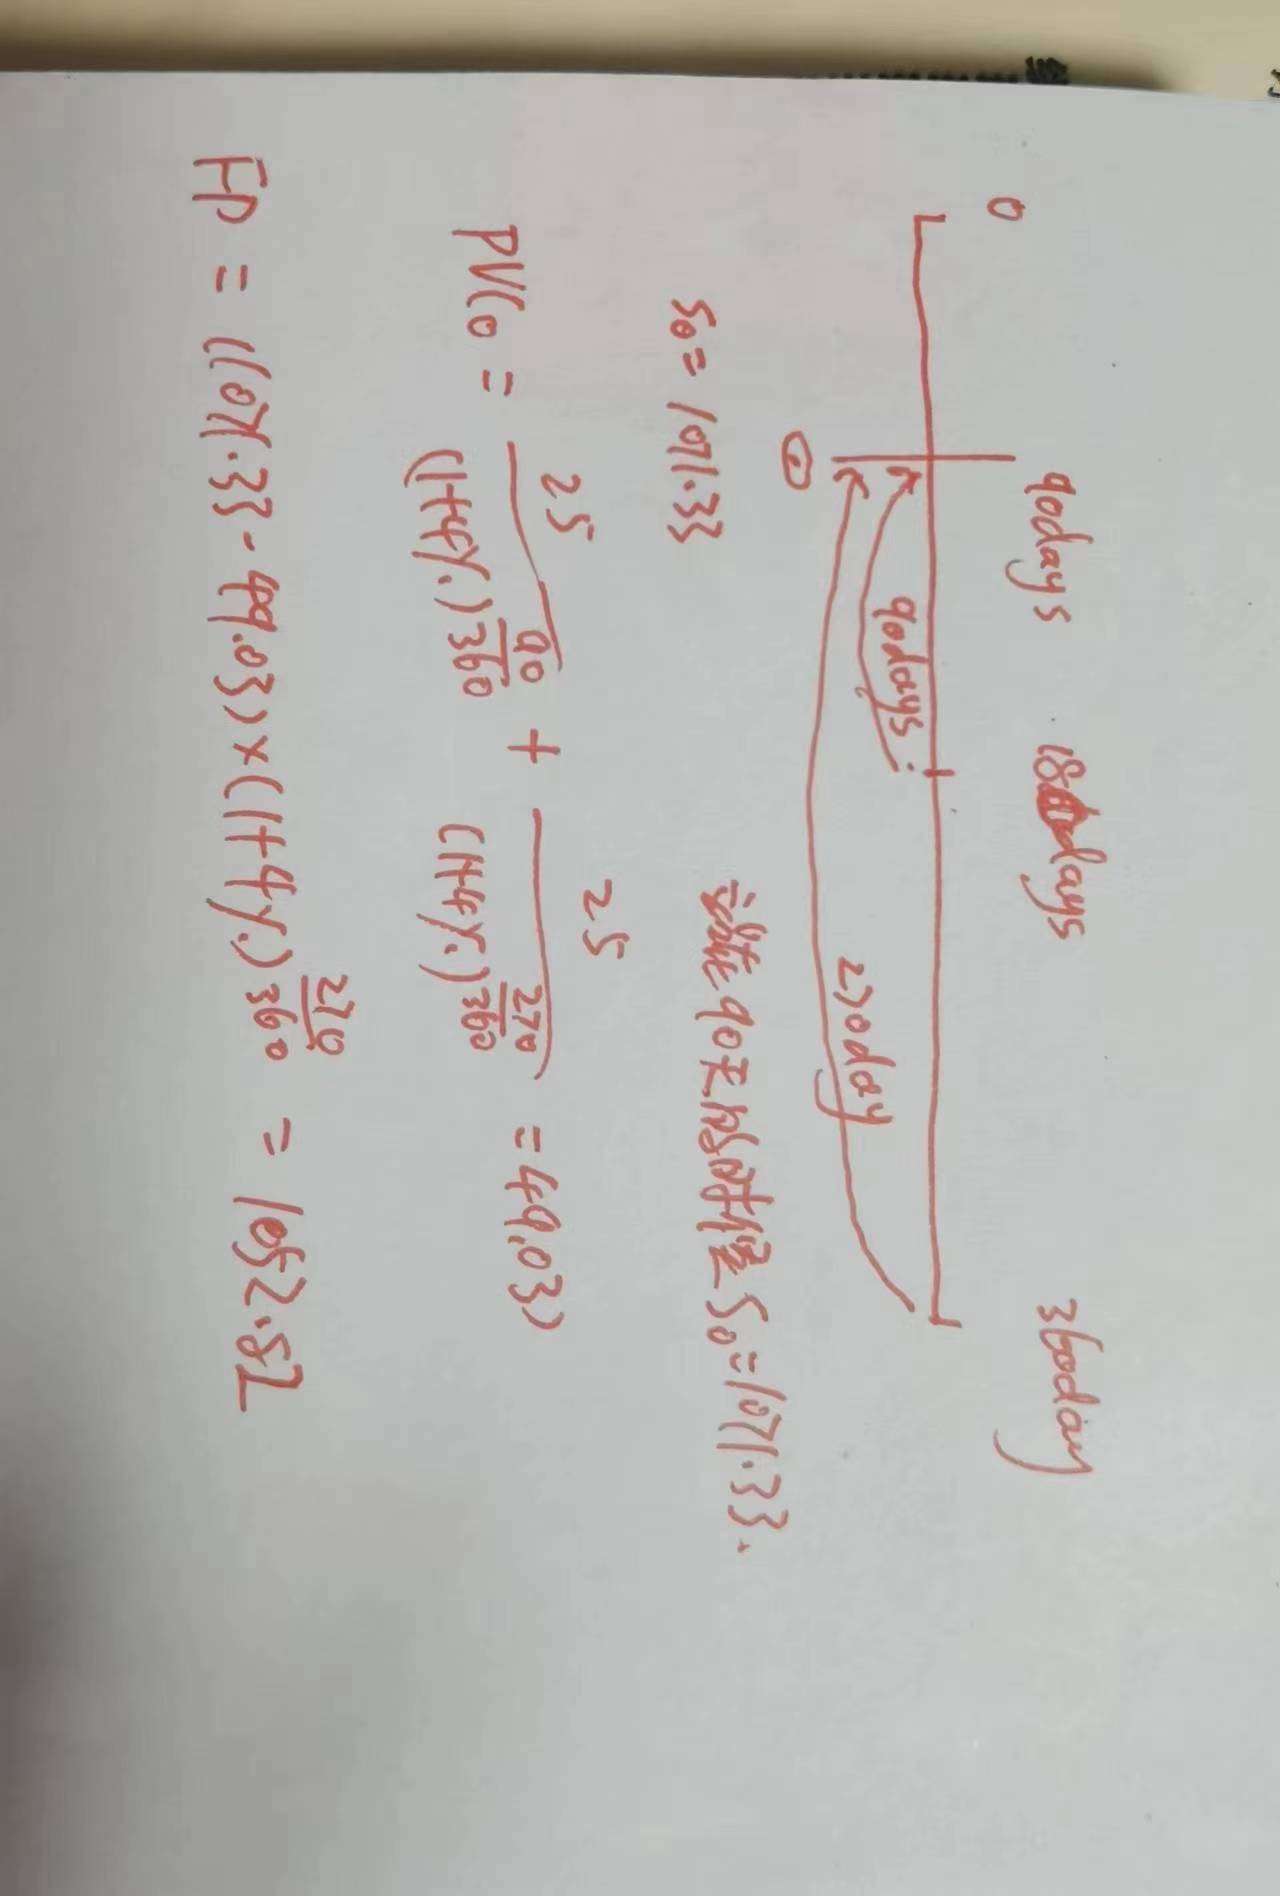 0 90days 180days 360day
90days
270day
①
S0 = 1071.33 站在90天的时候 S0=1071.33.
PVC0 = 25/(1+4%)^(90/360) + 25/(1+4%)^(270/360) = 49.03
FP = (1071.33-49.03)×(1+4%)^(270/360) = 1052.82